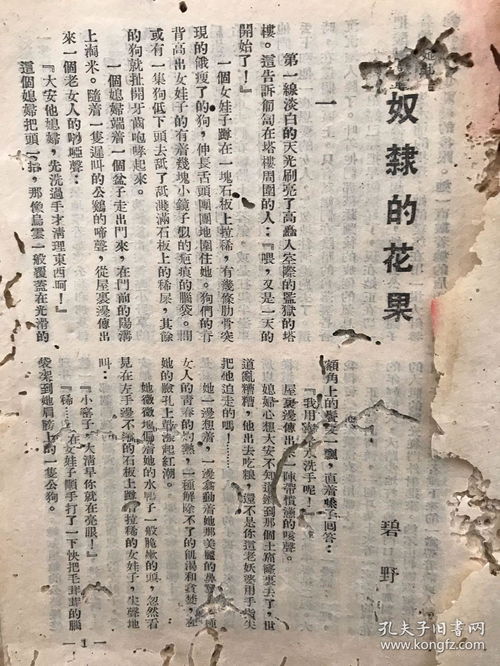 奴隸的花果
碧野
一
第一線淡白的天光刷亮了高矗入雲際的監獄的塔
樓。這告訴匍匐在塔樓周圍的人：『喂，又是一天的
開始了！』
一個女娃子蹲在一塊石板上拉稀，有幾條肋骨突
現的餓瘦了的狗，伸長舌頭團團地圍住她。狗們的脊
背高出女娃子的有着幾塊小鏡子似的疤痕的腦袋。間
或有一隻狗低下頭去舐了舐濺滿石板上的稀屎，其餘
的狗就扯開牙齒咆哮起來。
一個媳婦端着一個盆子走出門來，在門前的陽溝
上淘米。隨着一隻遲叫的公鷄的啼聲，從屋裏邊傳出
來一個老女人的嘶啞聲：
『大安他媳婦，先洗過手才清理東西呵！』
這個媳婦把頭一抬，那像烏雲一般覆蓋在光滑的
額角上的鬢髮一飄，直着嗓子回答：
『我用淘米水洗手呢！』
屋裏邊傳出一陣帶憤懣的咳聲。
媳婦心想大安不知道鑽到那個土窰窩裏去了，世
道亂糟糟，他出去吃糧，還不是你這老妖婆用手指尖
把他迫走的嗎！
她一邊想着，一邊翕動着她那美麗的鼻
女人的青春的灼熱，一種解除不了的飢渴和貪婪，在
她的臉孔上罩起紅潮。
她微微地偏着她的水鴨子一般脆嫩的頭，忽然看
見在左手邊不遠的石板上蹲着拉稀的女娃子，尖聲地
叫：
『小蜜子，大清早你就在亮眼！』
『稀……』在女娃子順手打了一下快把毛茸茸的腦
袋突到她肩膀上的一隻公狗。
— 1 —
孔夫子旧书网
kongfz.com